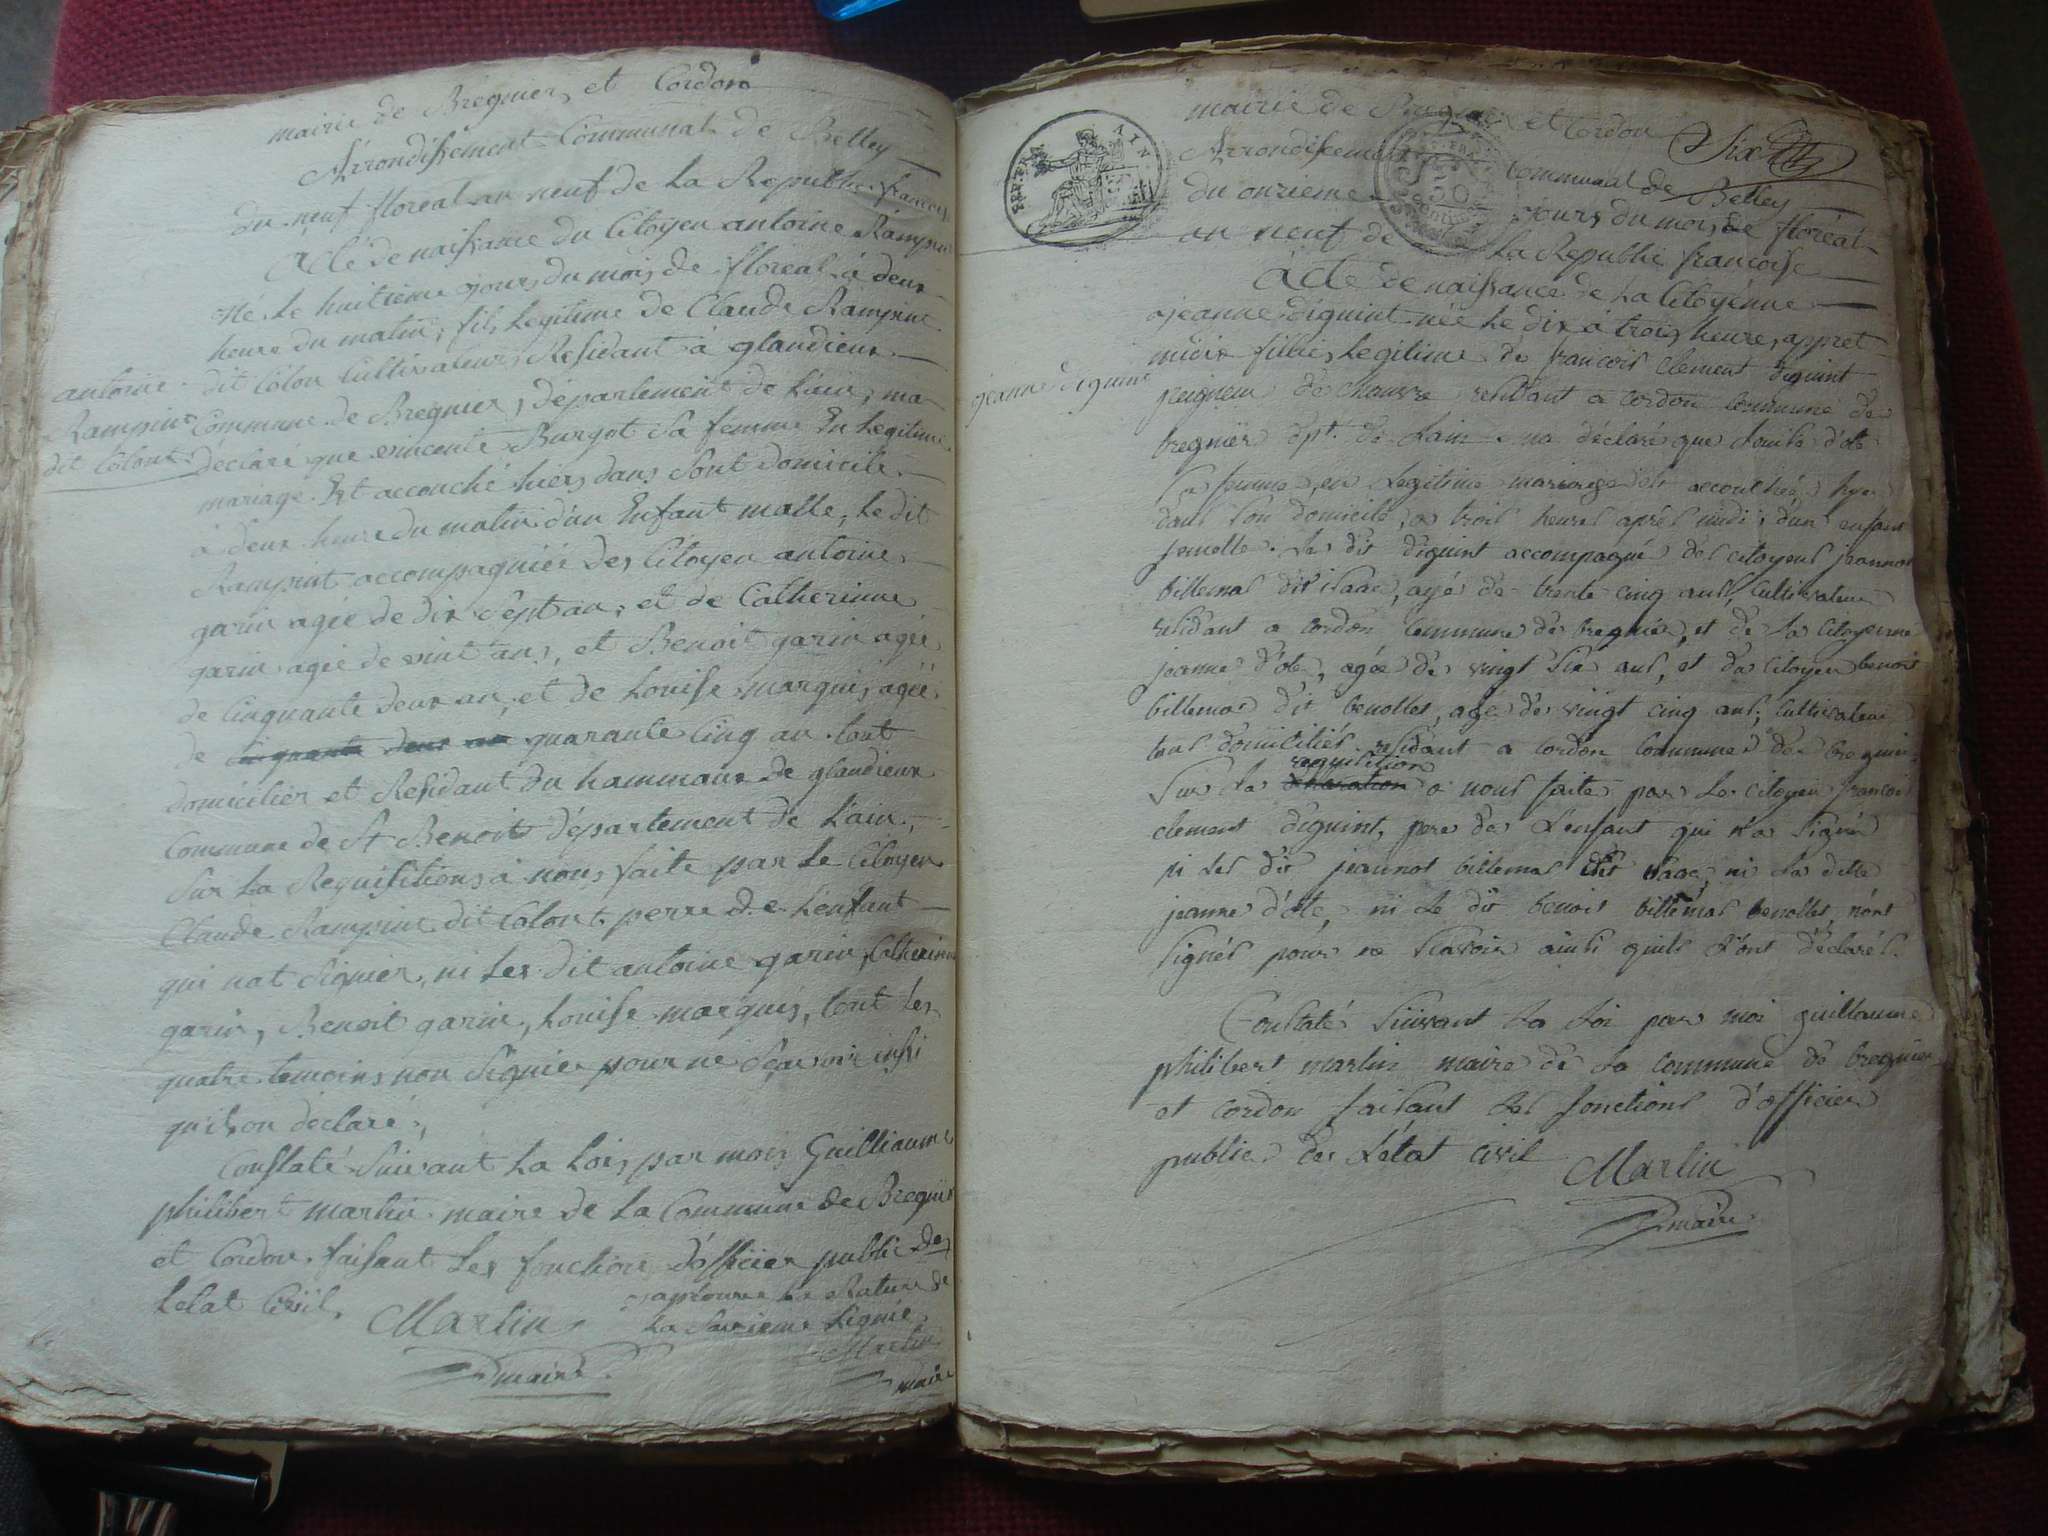 mairie de Bregnier et Cordon
Arrondissement Communal de Belley
du neuf floreal an neuf de la Republic francois
Acte de naissance du Citoyen antoine Rampint
Né le huitieme jours du mois de floreal à deux
heure du matin, fils legitime de Claude Rampint
dit Colon Cultivateur Residant à glandieux
antoine
Rampint
dit Colont
Commune de Bregnier, département de Lain, ma
déclaré que vincente Burgot Sa femme En legitime
mariage Est accouché hiers dans Sont domicile
à deux heure du matin d'un Enfant malle, le dit
Rampint accompagniée des Citoyen antoine
garin agée de dix sept an, et de Catherinne
garin agée de vint ans, et Benoit garin agée
de Cinquante deux an, et de Louise marquis, agée
de cinquante deux an quarante Cinq an tout
domicilier et Residant du hammaux de glandieux
Commune de St Benoit département de Lain,
Sur La Requisitions à nous faite par Le Citoyen
Claude Rampint dit Colont perre de Lenfant
qui nat Signier, ni Les dit antoine garin, Catherinne
garin, Benoit garin, Louise marquis, tout Les
quatre temoins non Signier pour ne Sçavoir insi
quils on declaré,
Constaté Suivant La Lois par mois Guilliaume
philibert martin maire de La Commune de Bregnier
et Cordon faisant Les fonctions d'officier public de
Letat Civil,
Martin
maire
japrouve La Rature de
La Seizieme Lignée
Martin
maire
mairie de Bregnier et Cordon
Six
REP. FRA. AIN
Arrondissement Communal de Belley
du onzieme jours du mois de floréal
an neuf de La Republic francoise
Acte de naissance de La Citoyenne
jeanne diguint née Le dix à trois heures, appret
jeanne diguint
midis fillies Legitime de francois Clement diguint
peigneur de chanvre residant a cordon commune de
bregnier dpt. de Lain. ma déclaré que Louise d'ole
Sa femme, en Legitime mariage est accouchée hyer
dans Son domicile, a trois heures aprés midi, d'un enfant
femelle. Le dit diguint accompagné des citoyens jeannot
billemas dit isaac, agé de trente cinq ans, cultivateur
residant a cordon commune de bregnier, et de La citoyenne
jeanne d'ole, agée de vingt Six ans, et du citoyen benoit
billemas dit benollet, agé de vingt cinq ans, cultivateur
tous domiciliés residant a cordon commune de bregnier
requisition
Sur La déclaration a nous faite par Le citoyen francois
clement diguint, pere de L'enfant qui n'a Signé
ni Les dit jeannot billemas dit isaac, ni La dite
jeanne d'ole, ni Le dit benoit billemas benollet, n'ont
Signés pour ne Scavoir ainsi quils L'ont déclarés.
Constaté Suivant La Loi par moi guillaume
philibert martin maire de La commune de bregnier
et cordon faisant Les fonctions d'officier
public de L'état civil
Martin
maire